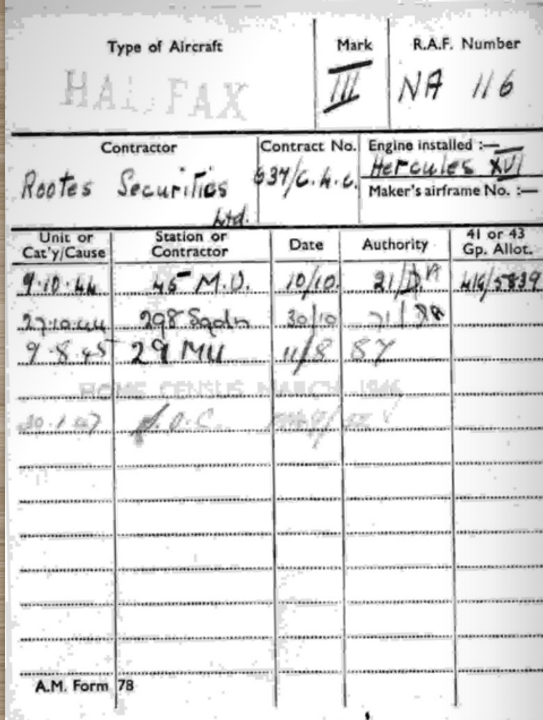 Type of Aircraft Mark R.A.F. Number
HALIFAX III NA 116
Contractor Contract No. Engine installed :—
Rootes Securities 637/C.4.c. Hercules XVI
Ltd. Maker's airframe No. :—
Unit or Cat'y/Cause Station or Contractor Date Authority 41 or 43 Gp. Allot.
9.10.44 45 M.U. 10/10. 21/ 41G/5839
27.10.44 298 Sqdn 30/10
9.8.45 29 MU 11/8 87
HOME CENSUS MARCH 1946
30.1.47 S.O.C.
A.M. Form 78